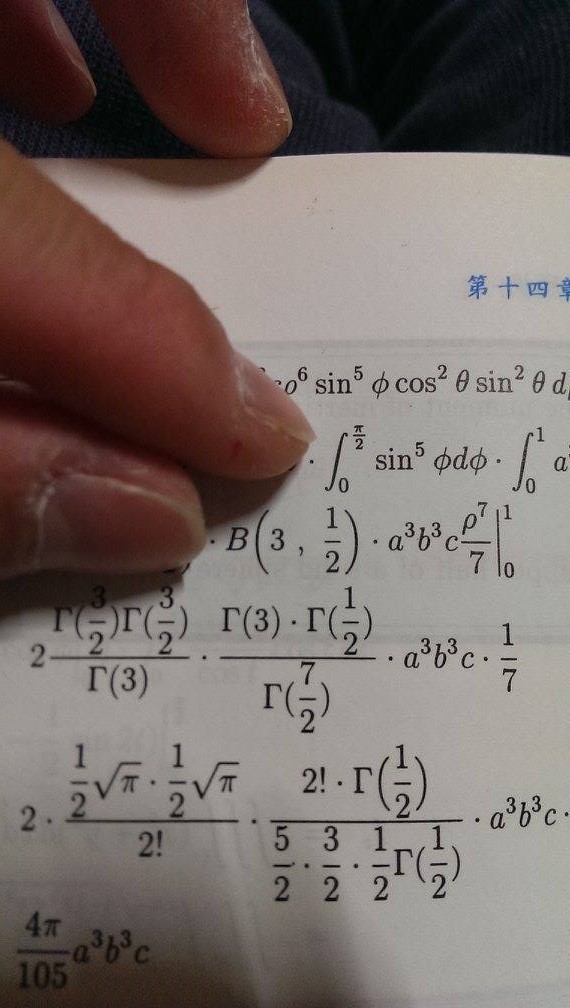 第十四章
ρ⁶ sin⁵ ϕ cos² θ sin² θ d
· ∫₀^{π/2} sin⁵ ϕdϕ · ∫₀¹ a
· B(3 , 1/2) · a³b³c ρ⁷/7 |₀¹
2 Γ(3/2)Γ(3/2)/Γ(3) · Γ(3) · Γ(1/2)/Γ(7/2) · a³b³c · 1/7
2 · (1/2 √π · 1/2 √π)/2! · (2! · Γ(1/2))/(5/2 · 3/2 · 1/2 Γ(1/2)) · a³b³c ·
4π/105 a³b³c